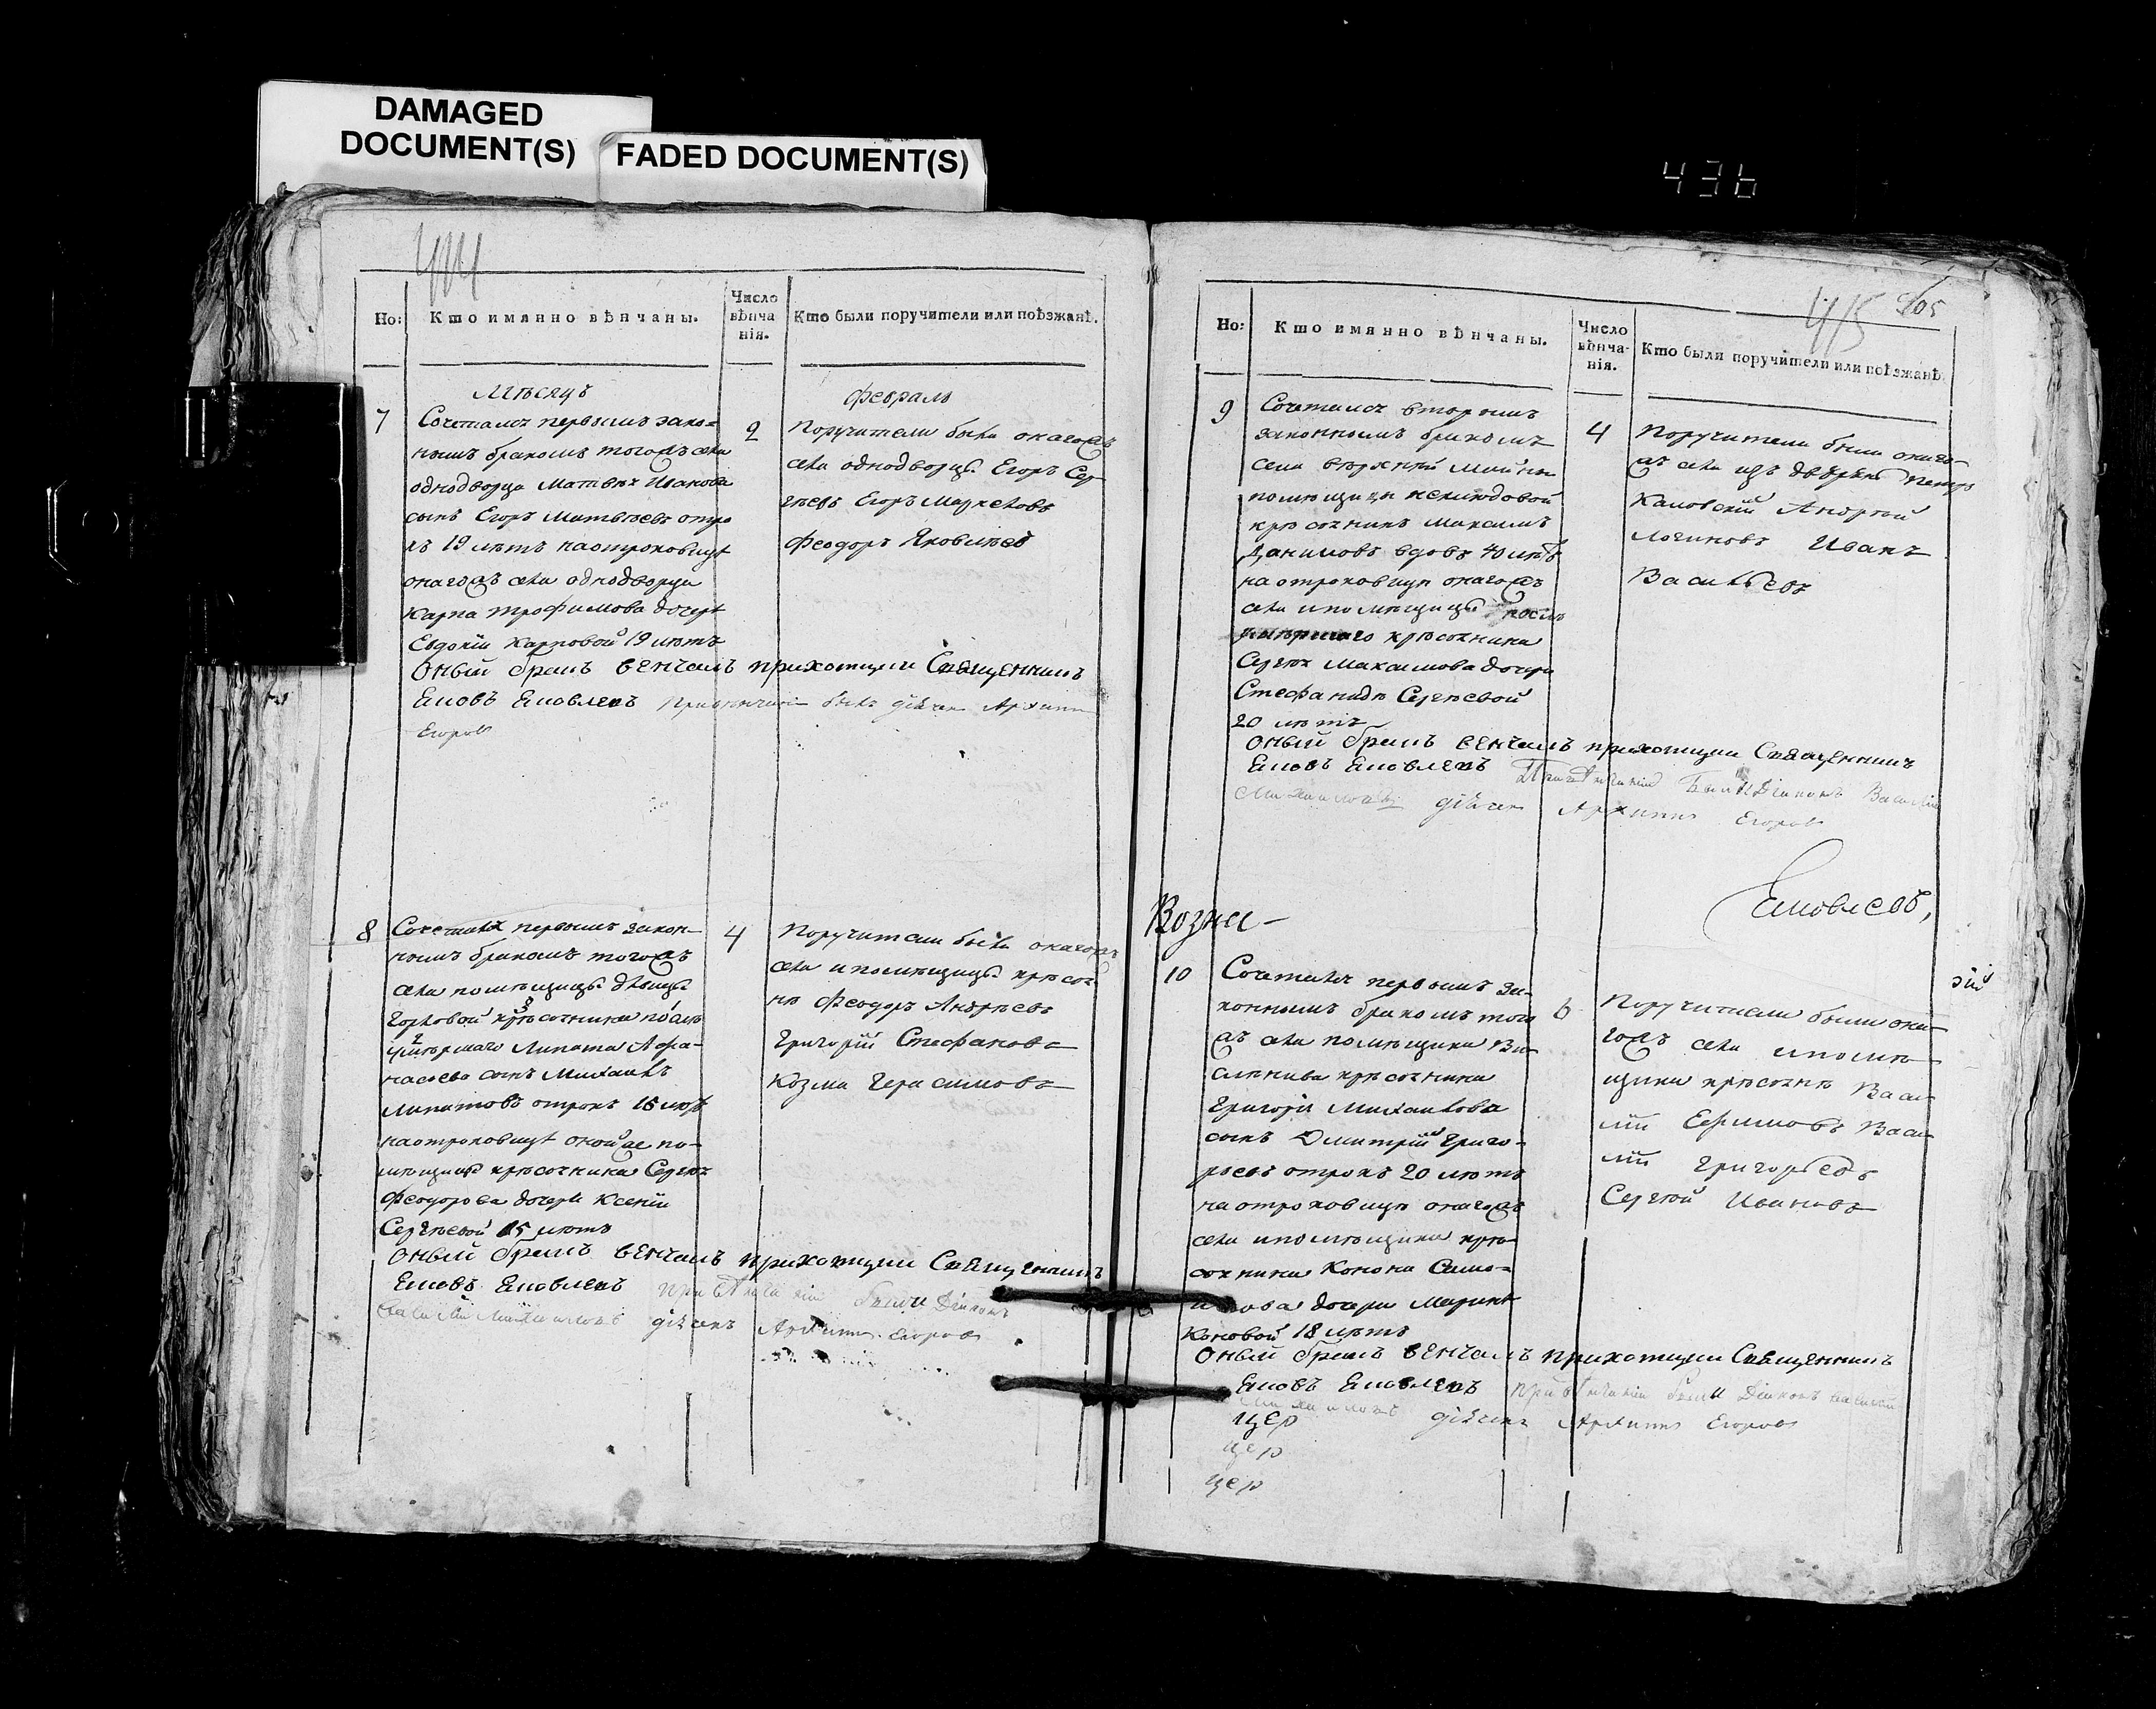 DAMAGED
DOCUMENT(S)
FADED DOCUMENT(S)
436
414
Но:
Кто имянно вѣнчаны.
Число
вѣнча
нія.
Кто были поручители или поѣзжанѣ.
Мѣсяцъ
Февраль
7
Сочетался первымъ зако=
нымъ бракомъ тогожъ села
однодворца Матвѣя Иванова
сынъ Егоръ Матвѣевъ отро
къ 19 лѣтъ наотроковицѣ
оногожъ села однодворца
Карпа Трофимова дочерѣ
Евдокіи Карповой 19 лѣтъ
2
Поручители были оногожъ
села однодворцы Егоръ Сер
гѣевъ Егоръ
Феодоръ Яковлѣвъ
Оный бракъ венчалъ приходящии Священникъ
Еиовъ Еиовлевъ привенчаніи былъ дьячек Архипъ
Егоровъ
8
Сочетался первымъ закон-
нымъ бракомъ тогожъ
села помѣщицы дѣвицы
Горловой крѣсочника послѣ
умѣршаго Липата Афа-
насьева сынъ Михаилъ
Липатовъ отрокъ 18 лѣтъ
наотроковицѣ онойже по-
мѣщицы крѣсочника Сергѣя
Феодорова дочери Ксеніи
Сергѣевой 15 лѣтъ
4
Поручители были оногожъ
села ипомѣщицы крѣсоч
нѣ Феодоръ Андрѣевъ
Григорій Стефановъ
Козма Герасимовъ
Оный бракъ венчалъ приходящии Священникъ
Еиовъ Еиовлевъ при вѣнчаніи были Діаконъ
Михаиловъ дьячекъ Архипъ Егоровъ
415
405
Но:
Кто имянно вѣнчаны.
Число
вѣнча-
нія.
Кто были поручители или поѣзжанѣ.
9
Сочетался вторымъ
законнымъ бракомъ
села
помѣщицы
крѣсочникъ Максимъ
Даниловъ вдовъ 40 лѣтъ
на отроковицѣ оногожъ
села ипомѣщицы послѣ
умѣршаго крѣсочника
Сергѣя Максимова дочери
Стефаниды Сергѣевой
20 лѣтъ
4
Поручители были оного-
жъ села изъ дворянъ Петръ
Каловскій Андрѣй
Логиновъ Иванъ
Васильевъ
Оный бракъ венчалъ приходящии Священникъ
Еиовъ Еиовлевъ При вѣнчаніи Были Діаконъ Василій
Михаиловъ дьячек Архипъ Егоровъ
Еиовлевъ,
Возне-
10
Сочетался первымъ за-
коннымъ бракомъ того
жъ села помѣщика
крѣсочника
Григорія Михаилова
сынъ Дмитрій Григо-
рьевъ отрокъ 20 лѣтъ
на отроковицѣ оногожъ
села ипомѣщика крѣ-
сочника Конона
дочери Маринѣ
Коновой 18 лѣтъ
6
Поручители были оно-
гожъ села ипомѣ-
щика крѣсочнѣ Васи-
лій Ефимовъ Васи-
лій Григорьевъ
Сергѣй Ивановъ
Оный бракъ венчалъ приходящии Священникъ
Еиовъ Еиовлевъ при вѣнчаніи были Діаконъ Василій
Михаиловъ дьячекъ Архипъ Егоровъ
цер
цер
цер